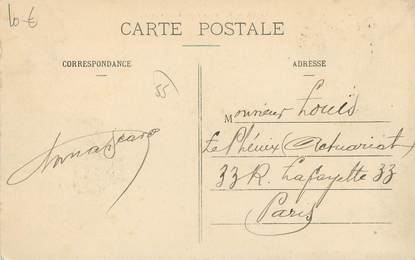 10 €
CARTE POSTALE
CORRESPONDANCE
ADRESSE
55
Monsieur Louis
Le Phénix (Actuariat)
33 R. Lafayette 33
Paris